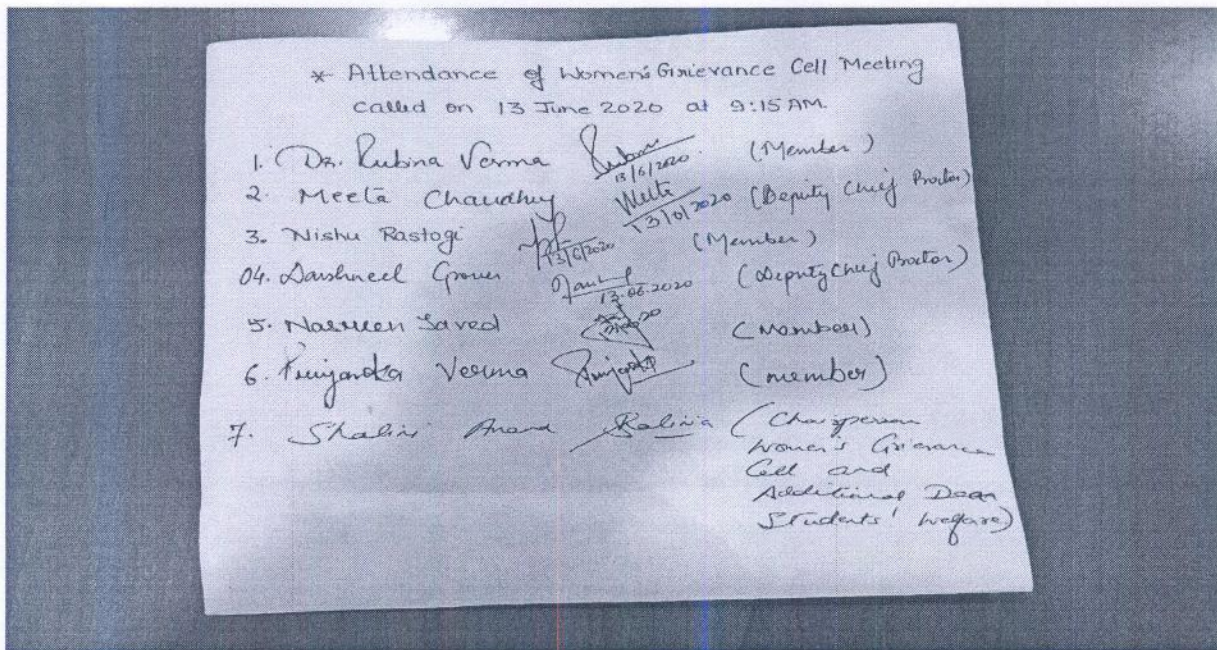 * Attendance of Women's Grievance Cell Meeting
called on 13 June 2020 at 9:15 AM.
1. Dr. Rubina Verma 13/6/2020. (Member)
2. Meeta Chaudhry 13/6/2020 (Deputy Chief Proctor)
3. Nishu Rastogi 13/6/2020 (Member)
04. Darshneel Grover 13.06.2020 (Deputy Chief Proctor)
5. Nasreen Javed (Member)
6. Priyanka Verma Priyanka (member)
7. Shalini Anand Shalini (Chairperson
Women's Grievance
Cell and
Additional Dean
Students' Welfare)